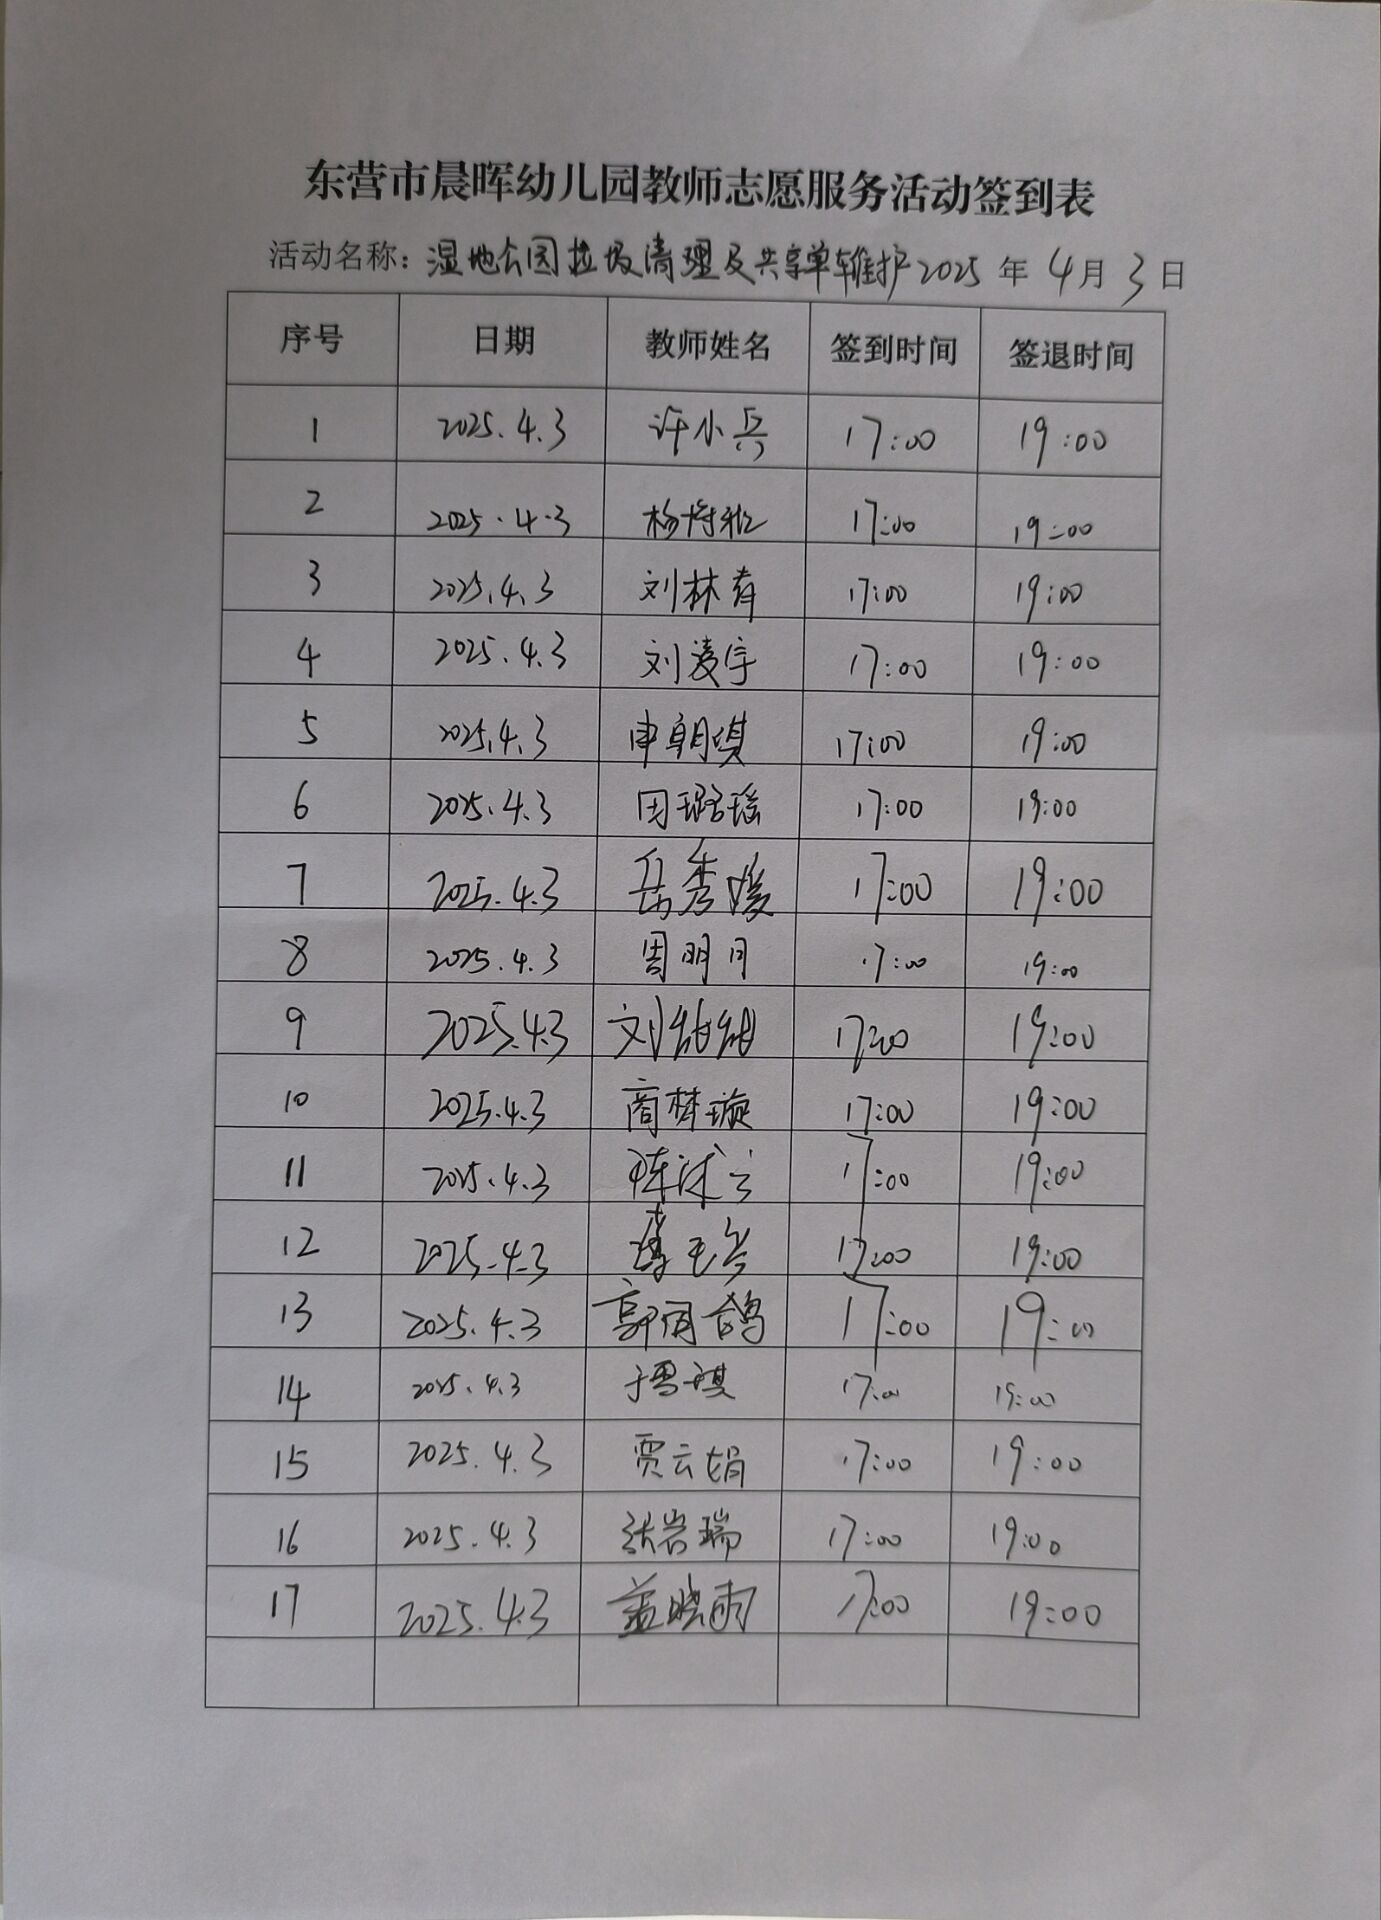 东营市晨晖幼儿园教师志愿服务活动签到表
活动名称：湿地公园垃圾清理及共享单车维护 2025 年 4 月 3 日
序号 日期 教师姓名 签到时间 签退时间
1 2025.4.3 许小兵 17:00 19:00
2 2025.4.3 17:00 19:00
3 2025.4.3 刘林春 17:00 19:00
4 2025.4.3 刘凌宇 17:00 19:00
5 2025.4.3 申朝琪 17:00 19:00
6 2025.4.3 田璐瑶 17:00 19:00
7 2025.4.3 岳秀媛 17:00 19:00
8 2025.4.3 周明月 17:00 19:00
9 2025.4.3 刘 17:00 19:00
10 2025.4.3 商梦璇 17:00 19:00
11 2025.4.3 陈 17:00 19:00
12 2025.4.3 17:00 19:00
13 2025.4.3 郭雨鸽 17:00 19:00
14 2025.4.3 于雪琪 17:00 19:00
15 2025.4.3 贾云娟 17:00 19:00
16 2025.4.3 张岩瑞 17:00 19:00
17 2025.4.3 盖晓雨 17:00 19:00